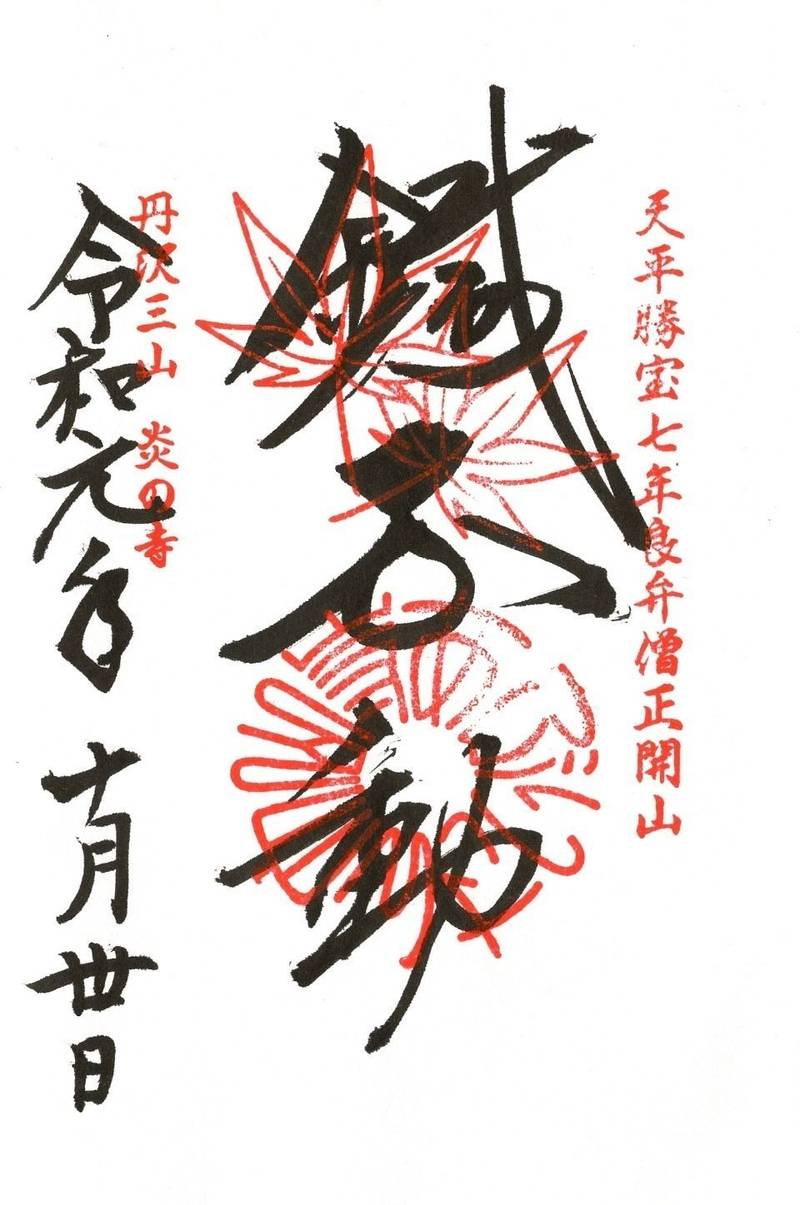 天平勝宝七年良弁僧正開山
鐵不動
丹沢三山 炎の寺
令和元年 十月卅日